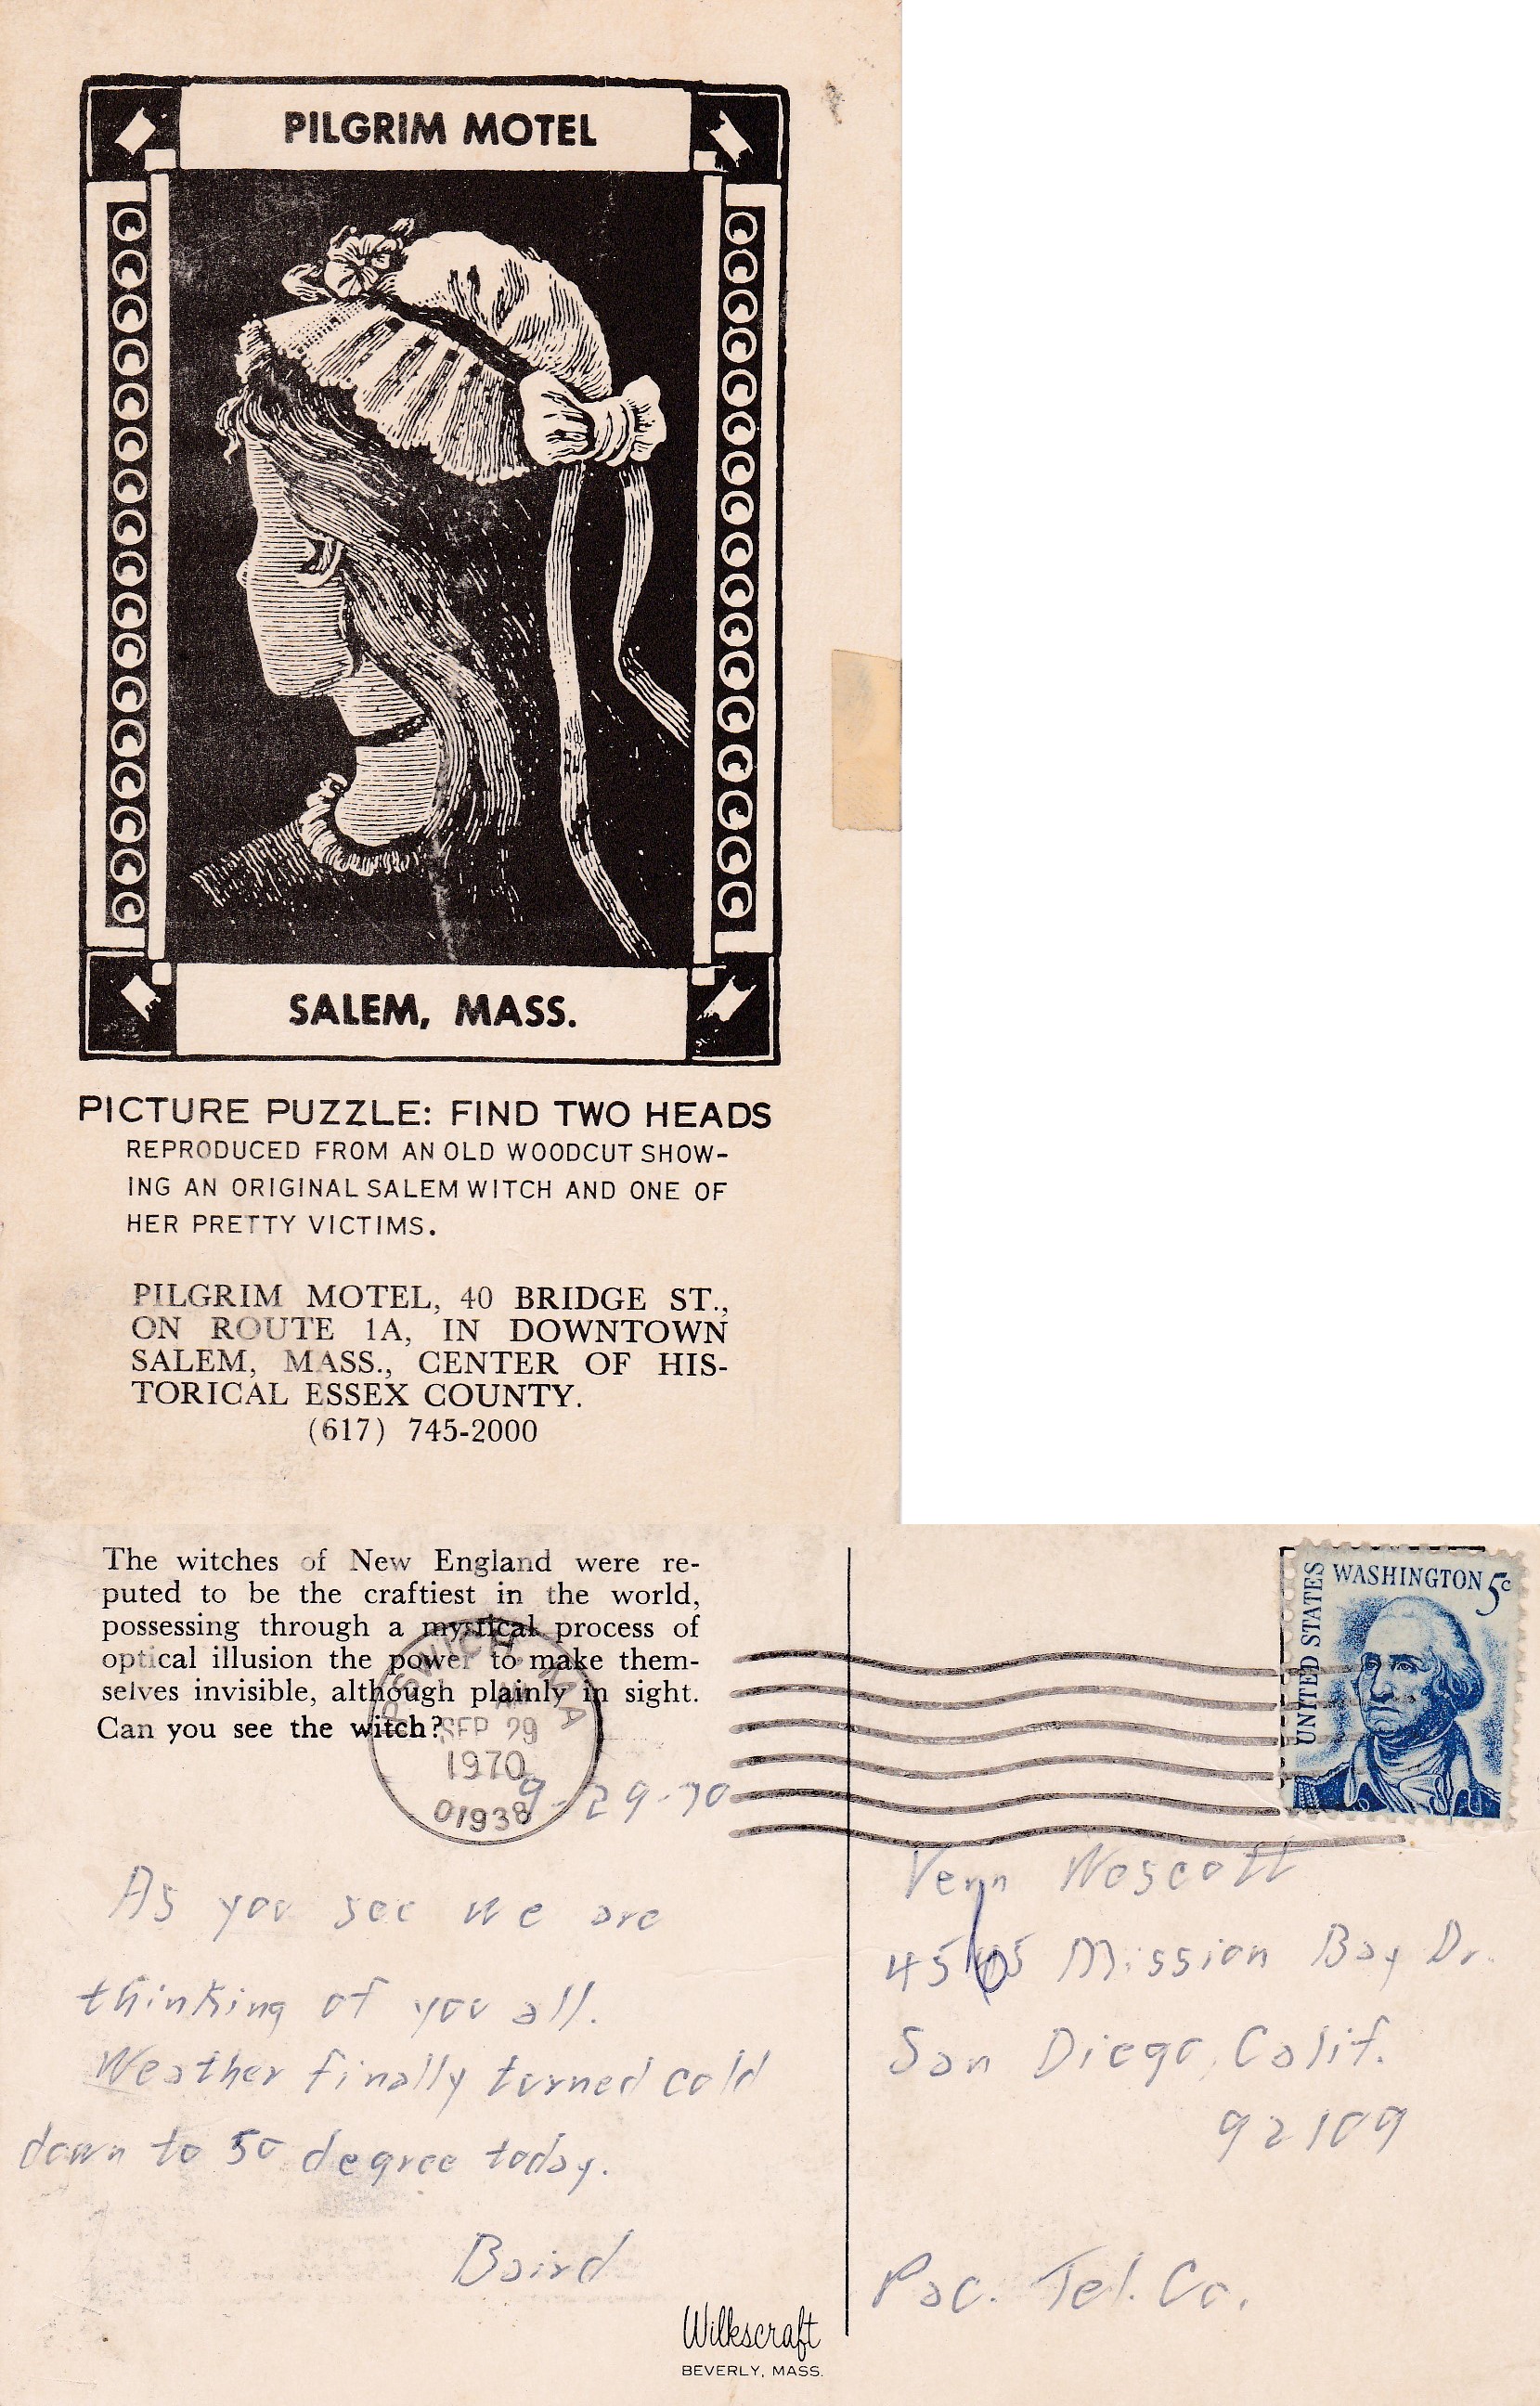 PILGRIM MOTEL
SALEM, MASS.
PICTURE PUZZLE: FIND TWO HEADS
REPRODUCED FROM AN OLD WOODCUT SHOW-
ING AN ORIGINAL SALEM WITCH AND ONE OF
HER PRETTY VICTIMS.
PILGRIM MOTEL, 40 BRIDGE ST.,
ON ROUTE 1A, IN DOWNTOWN
SALEM, MASS., CENTER OF HIS-
TORICAL ESSEX COUNTY.
(617) 745-2000
The witches of New England were re-
puted to be the craftiest in the world,
possessing through a mystical process of
optical illusion the power to make them-
selves invisible, although plainly in sight.
Can you see the witch?
SEP 29
1970
01938
9-29-70
As you see we are
thinking of you all.
Weather finally turned cold
down to 50 degree today.
Baird
Wilkscraft
BEVERLY, MASS.
UNITED STATES
WASHINGTON 5c
Vern Wescott
Mission Bay Dr.
San Diego, Calif.
92109
Pac. Tel. Co.